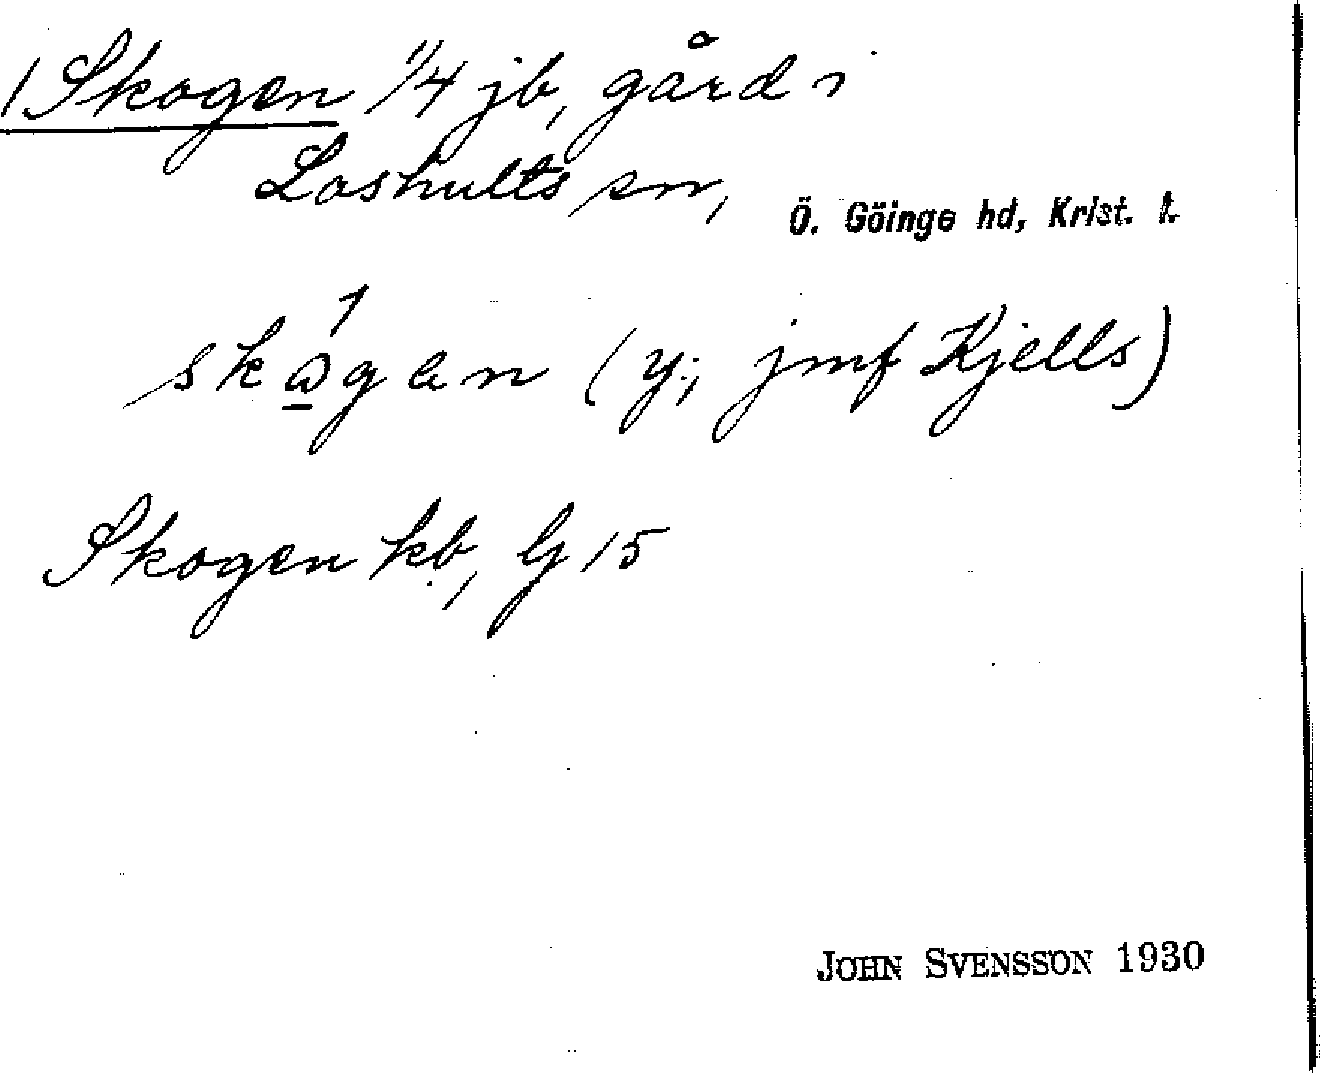 1 Skogen 1/4 jb, gård i
Loshults sn, Ö. Göinge hd, Krist. l.
skògen (y; jmf Kjells)
Skogen kb, G 15
JOHN SVENSSON 1930